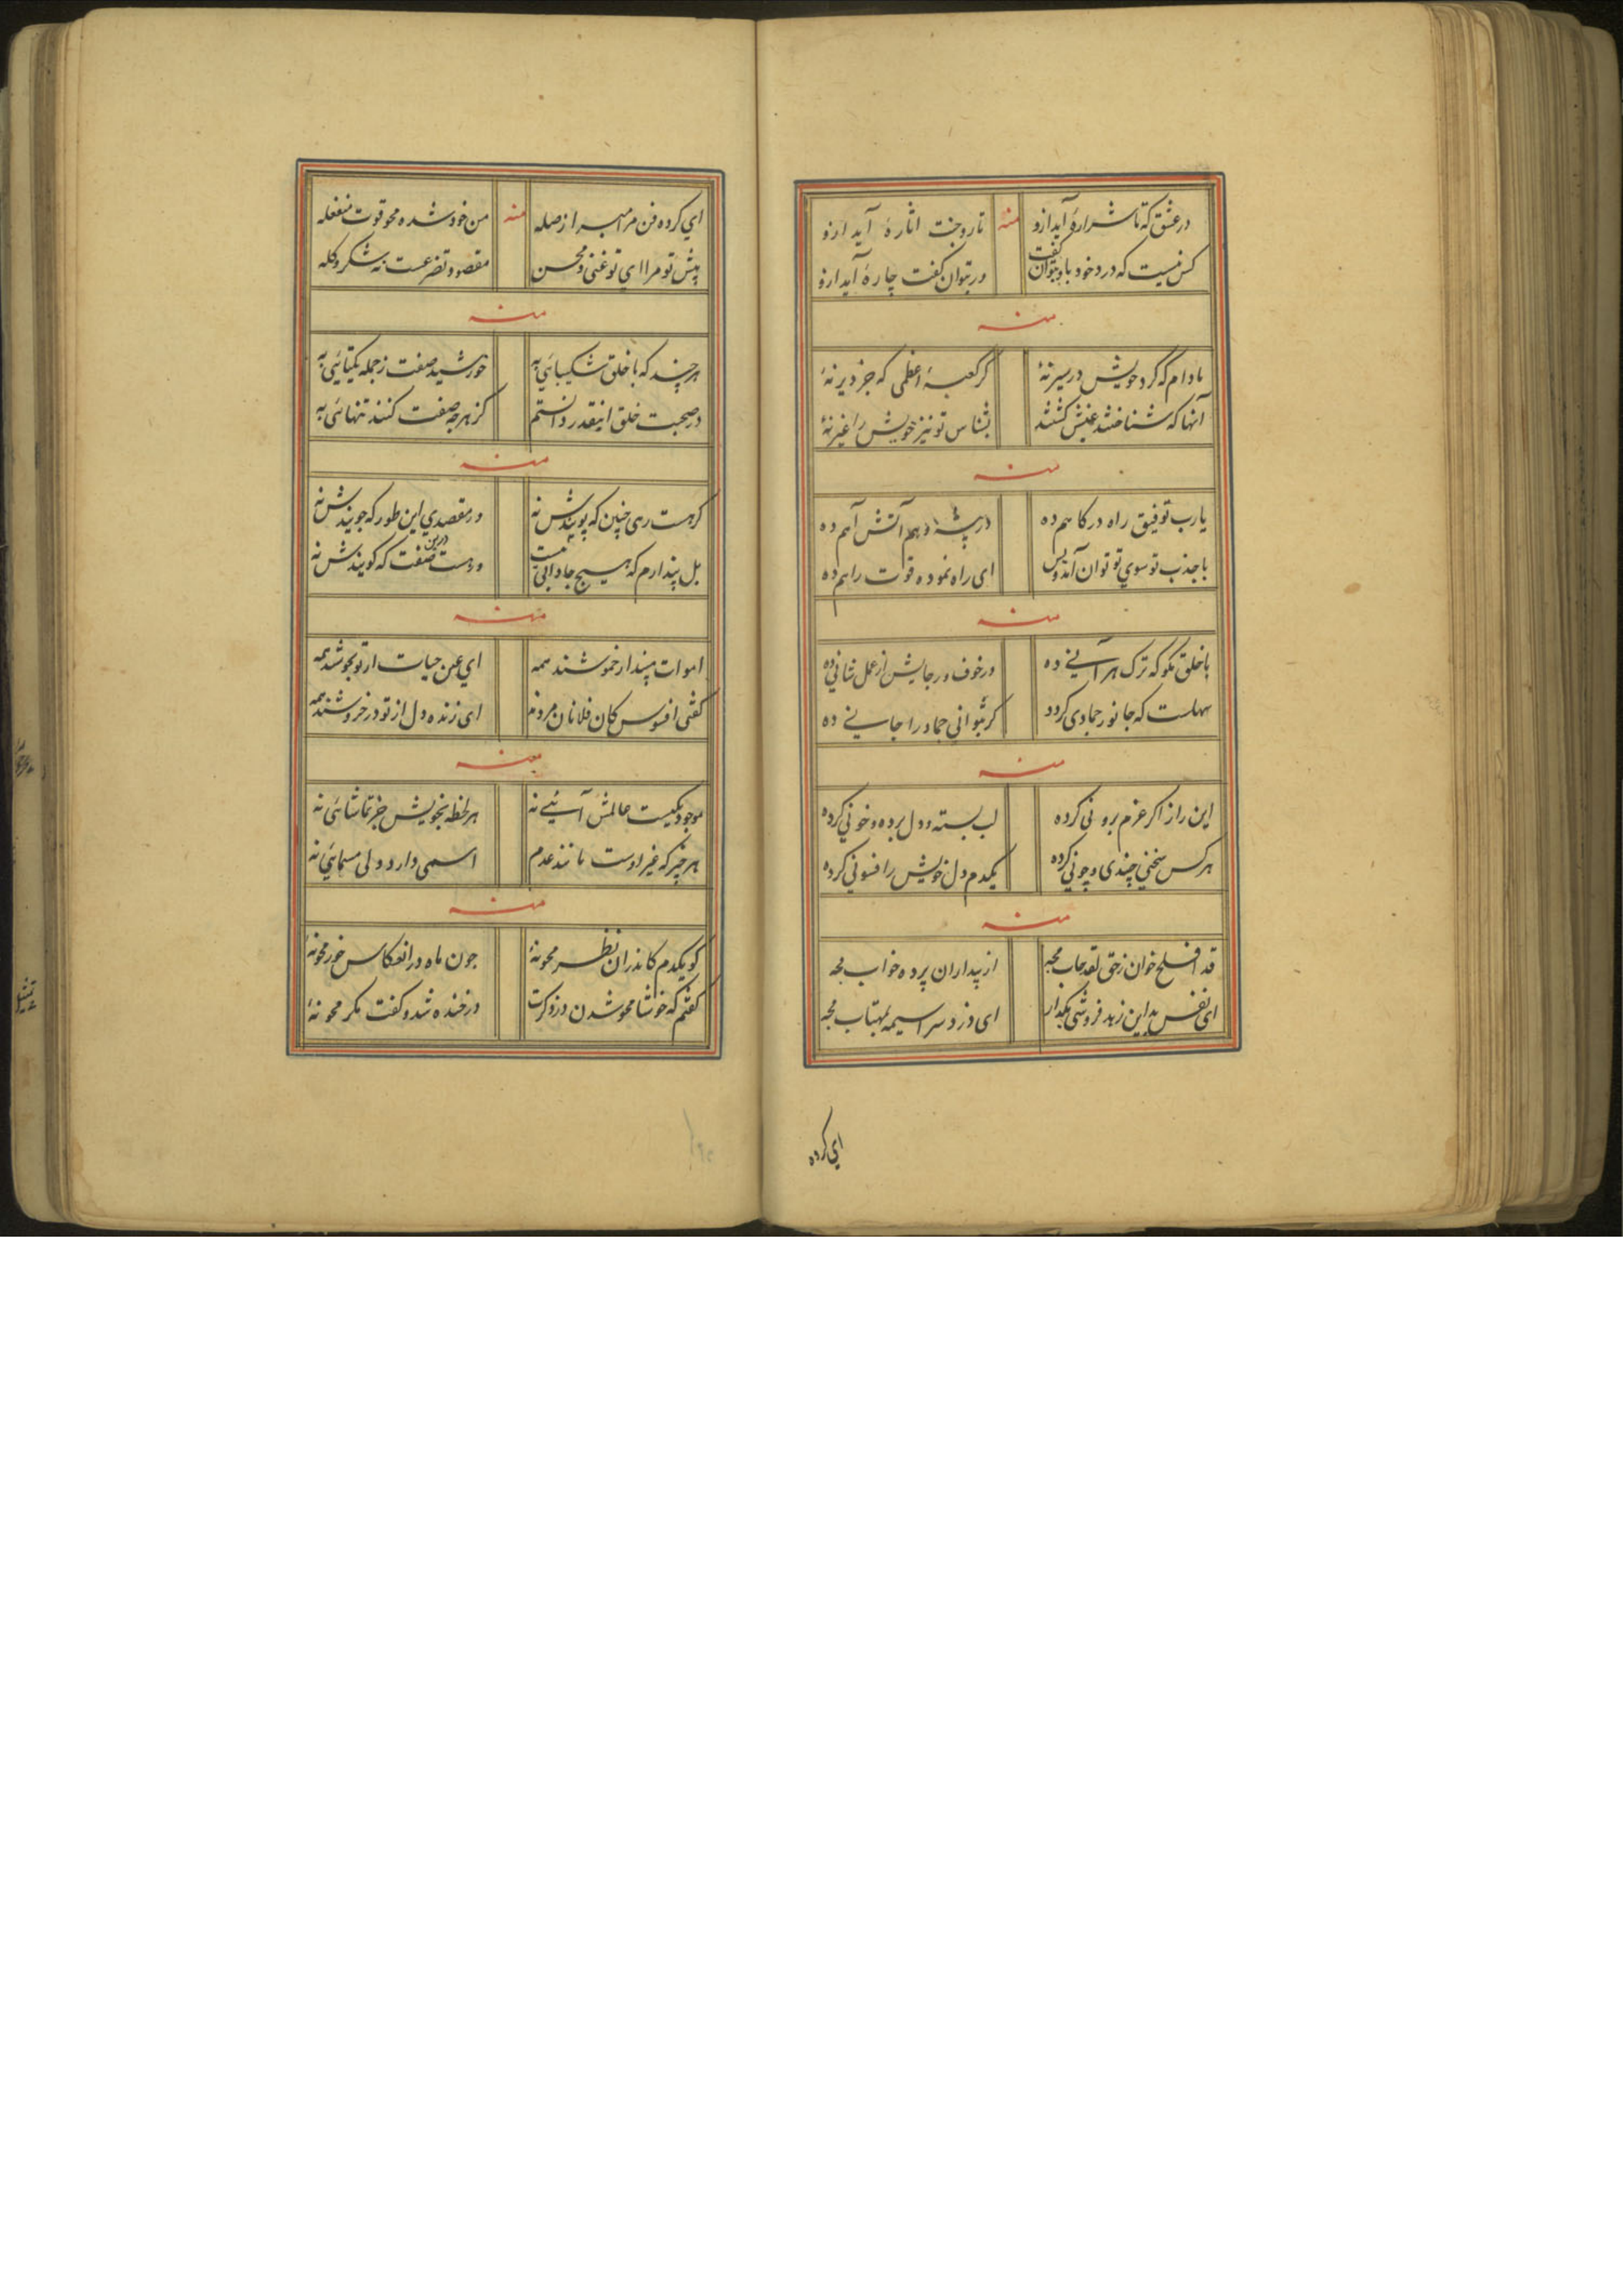 در عشق که تا شرارهٔ آید ازو منه تا روجنت اثارهٔ آید ازو
کس نیست که درد خود باو بتوان گفت ور بتوان گفت چارهٔ آید ازو
منه
مادام که گرد خویش در سیر نهٔ گر کعبهٔ اعظمی که جز دیر نهٔ
آنها که شناختند عینش کشتند بشناس تو نیز خویش را غیر نهٔ
منه
یارب توفیق راه درکاهم ده در آتش آهم ده
با جذب تو سوی تو توان آمد و بس ای راه نموده قوت راهم ده
منه
با خلق بکو که ترک هر آنی ده ور خوف و رجایش از عمل شانی ده
سهلست که جانور جمادی کردد کر بتوانی جماد را جانی ده
منه
این راز اکر عزم برونی کرده لب بسته و دل برده و خونی کرده
هر کس سخنی چندی و چونی کرده یکدم دل خویش را فسونی کرده
منه
قد افلح خوان زحق مجه از پیداران پرده خواب مجه
ای نفس بد این زهد فروشی بکذار ای دزد سراسیمه بمهتاب مجه
ای کرده
ای کرده فن مرا مبرا از صله منه من خود شده محو قوت منفعله
پیش تو مرا ای تو غنی و محسن مقصود تضرعست نه شکر و کله
منه
هر چند که با خلق شکیبائی به خورشید صفت ز جمله یکتائی به
در صحبت خلق اینقدر دانستم کز هر چه صفت کنند تنهائی به
منه
کر هست رهی چنین که پویندش نه ور مقصدی این طور که جویندش نه
بل پندارم که هیچ جا دابی نیست ور هست درین صفت که کویندش نه
منه
اموات مپندار خموشند همه ای عین حیات از تو بجوشند همه
کفتی افسوس کان فلانان مردند ای زنده دل از تو در خروشند همه
منه
موجود یکیست عالمش آئینه هر لحظه بخویش جز تماشائی نه
هر چیز که غیر اوست مانند عدم اسمی دارد ولی مسمائی نه
منه
کو یکدم کاندران نظر محو نهٔ چون ماه در انعکاس خور محو نهٔ
کفتم که خوشا محو شدن در خنده شد و کفت مکر محو نهٔ